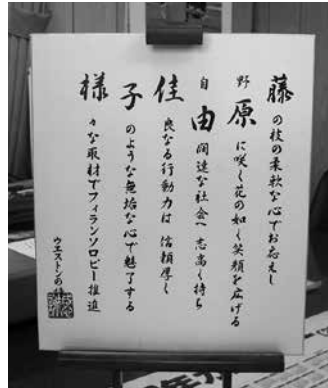 藤の枝の柔軟な心でお応えし
野原に咲く花の如く笑顔を広げる
自由闊達な社会へ志高く持ち
佳良なる行動力は信頼厚く
子のような無垢な心で魅了する
様々な取材でフィランソロピー推進
ウエストンの